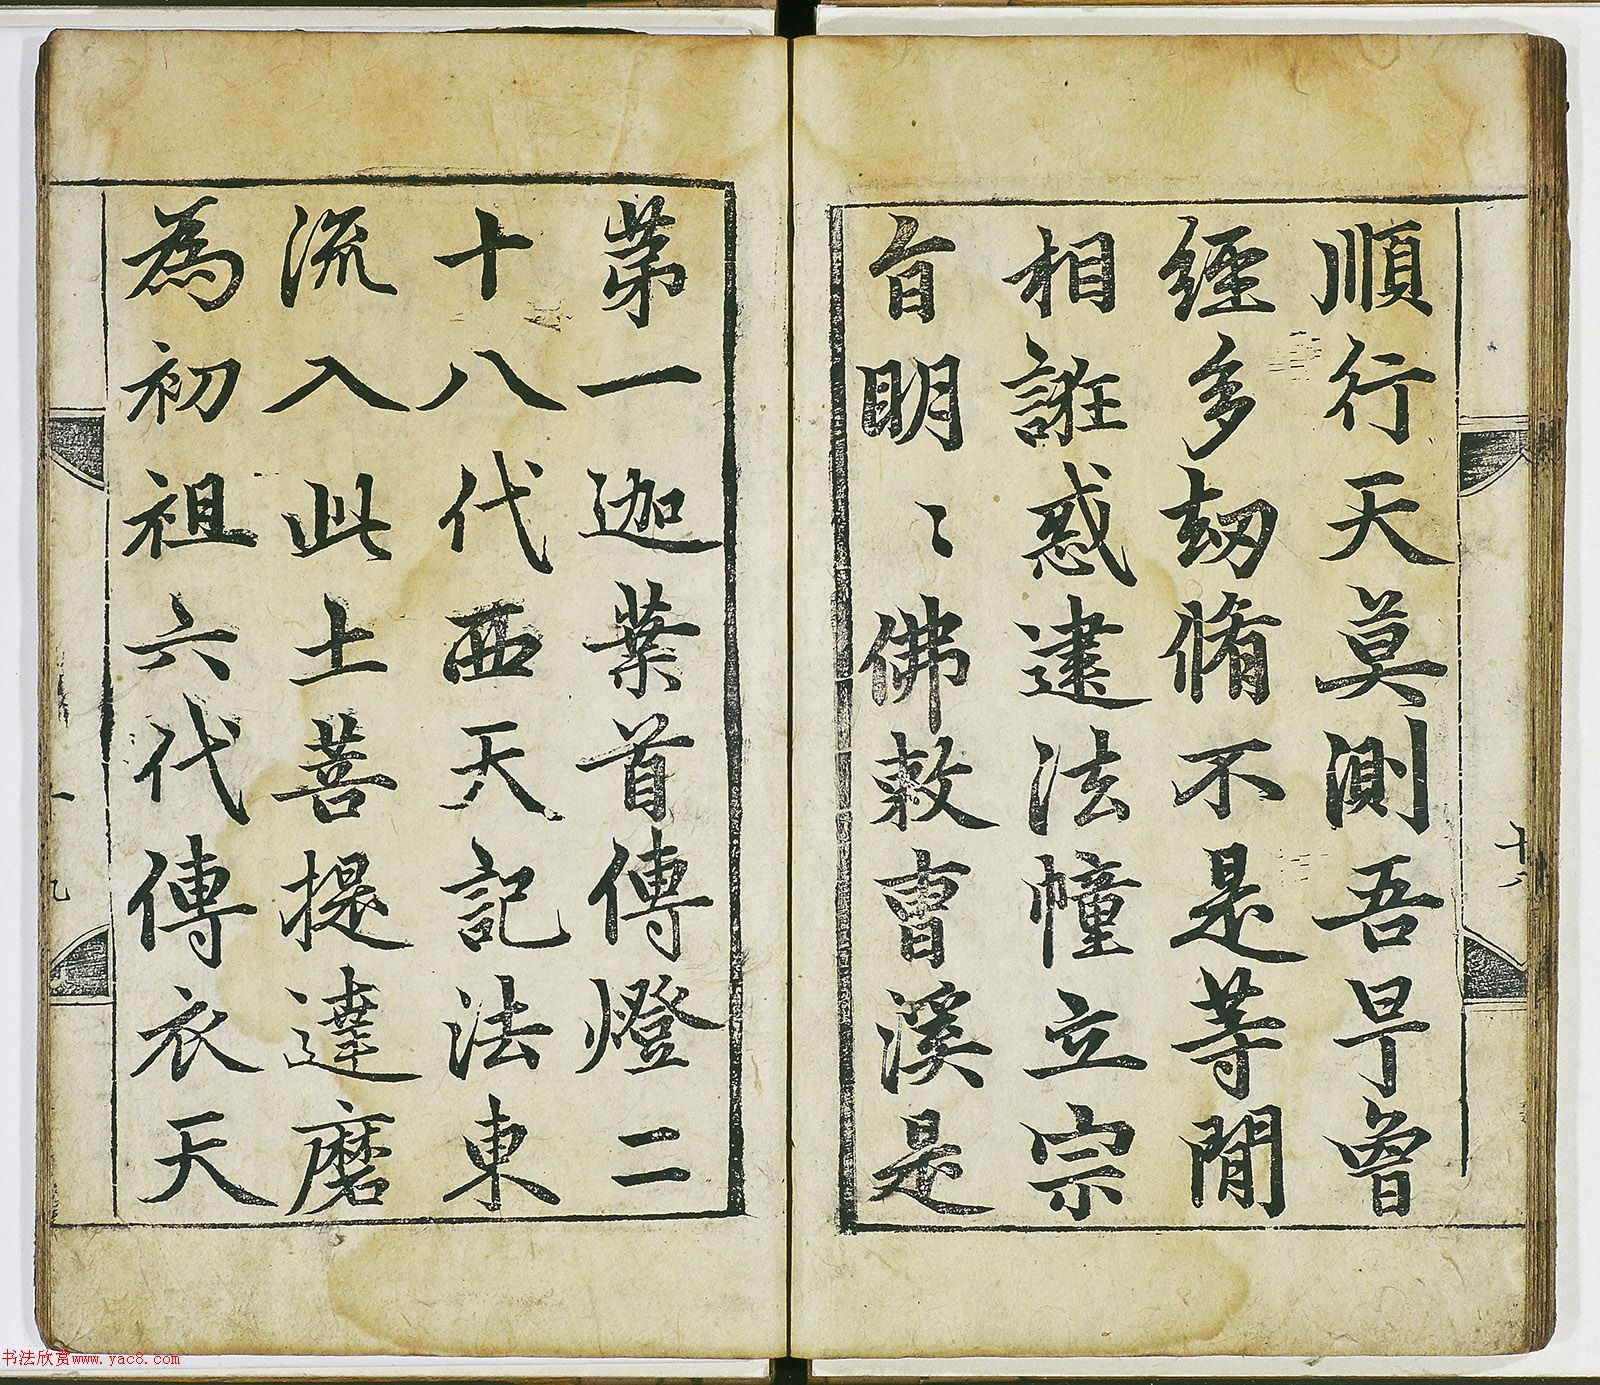 順行天莫測吾早曾
經多劫脩不是等閒
相誑惑建法幢立宗
旨明〻佛敕曺溪是
十八
第一迦葉首傳燈二
十八代西天記法東
流入此土菩提達磨
為初祖六代傳衣天
书法欣赏www.yac8.com